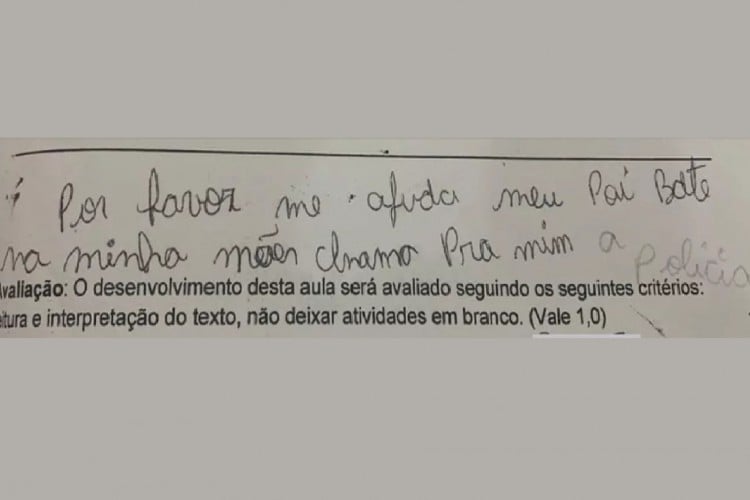 Por favor me ajuda meu Pai Bate
na minha mães chama Pra mim a Policia
Avaliação: O desenvolvimento desta aula será avaliado seguindo os seguintes critérios:
eitura e interpretação do texto, não deixar atividades em branco. (Vale 1,0)